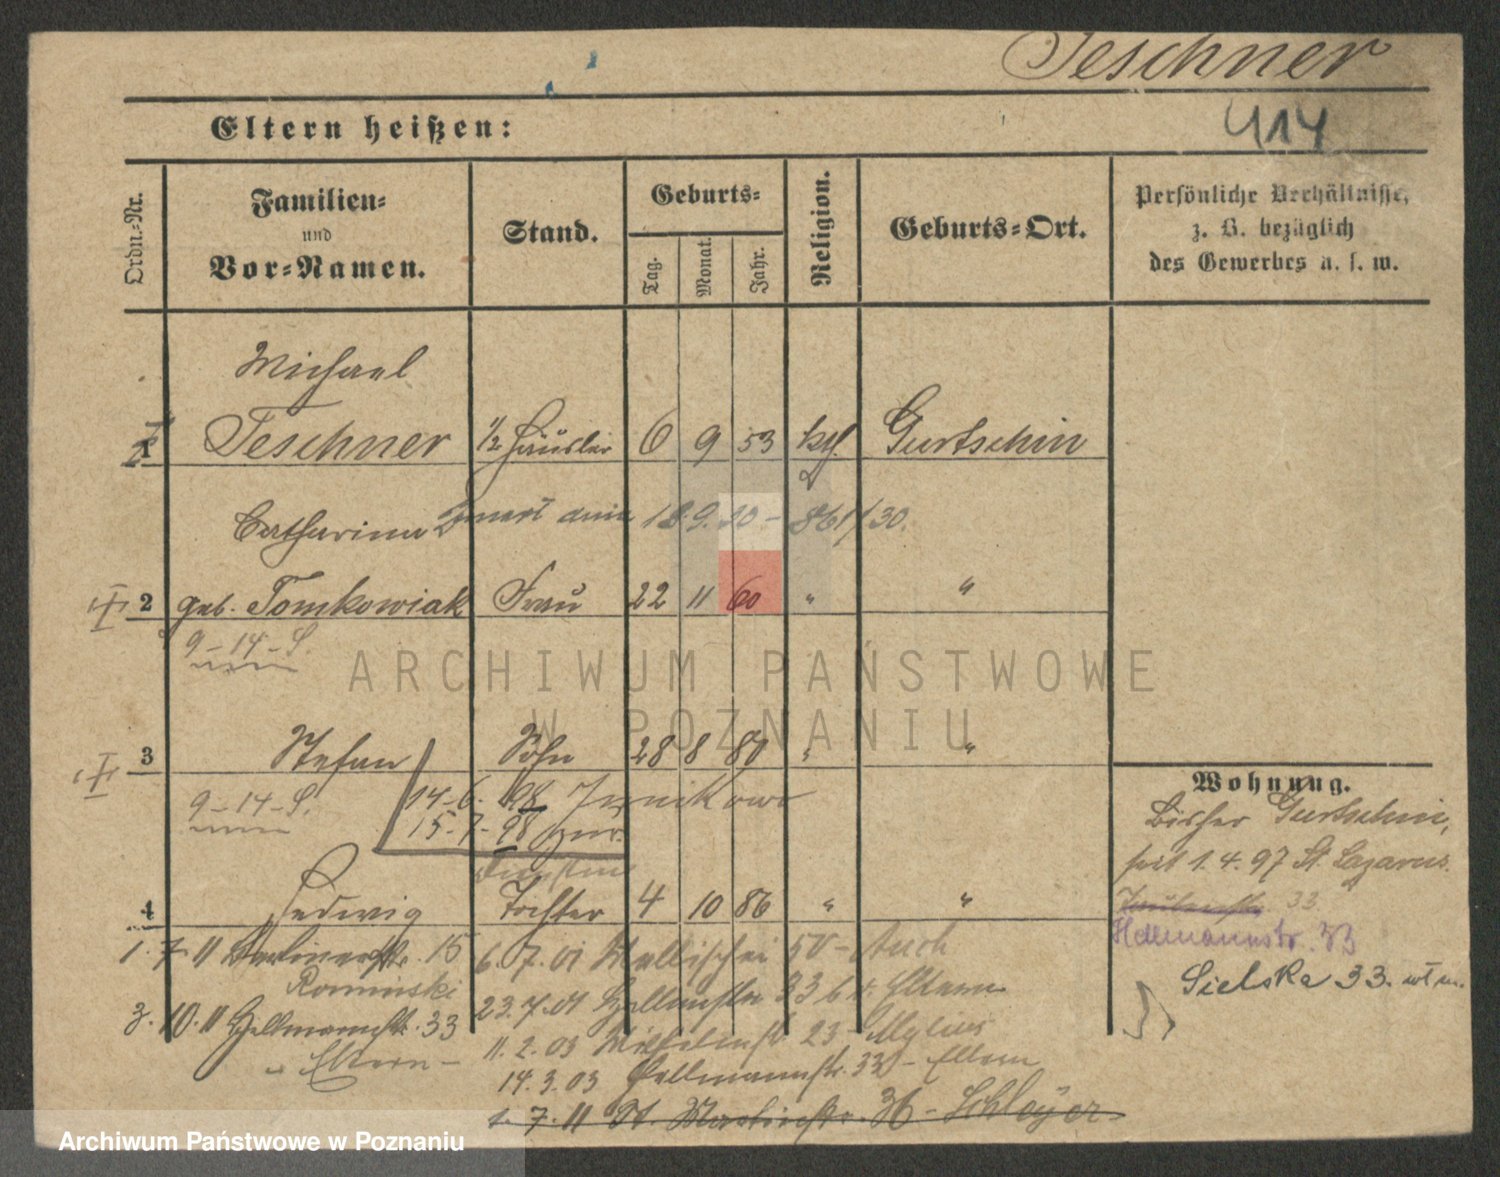 Teschner
414
Eltern heißen:
Ordn.-Nr.
Familien-
und
Vor-Namen.
Stand.
Geburts-
Tag.
Monat.
Jahr.
Religion.
Geburts-Ort.
Persönliche Verhältnisse,
z. B. bezüglich
des Gewerbes u. s. w.
Michael
1 Teschner ½ Häusler 6 9 53 kth. Gurtschin
Catharina zmarł dnia 18.9.20 - 861/30.
2 geb. Tomkowiak Frau 22 11 60 " "
9-14-S.
3 Stefan Sohn 28 8 80 " "
9-14-S.
14-6-98 Junikowo
15-7-98 zur.
4 Hedwig Tochter 4 10 86 " "
1. 7. 11 Berlinerstr. 15
Rominski
3. 10. 11 Hellmannstr. 33
Eltern -
6. 7. 01 Wallischei 50 -
23. 7. 01 33 b. Eltern
11. 2. 03 23
14. 3. 03 Hellmannstr. 33 - Eltern
1. 7. 11 St. Martinstr. 36 - Schleyer
Wohnung.
Bisher Gurtschin,
seit 1. 4. 97 St. Lazarus.
33.
Hellmannstr. 33
Sielska 33.
ARCHIWUM PAŃSTWOWE
W POZNANIU
Archiwum Państwowe w Poznaniu